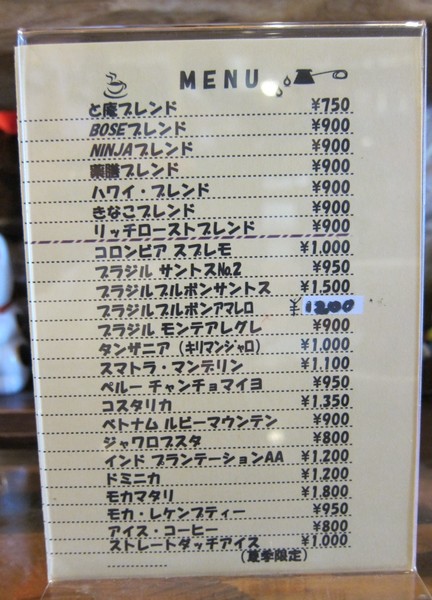 MENU
と庵ブレンド ¥750
BOSEブレンド ¥900
NINJAブレンド ¥900
薬膳ブレンド ¥900
ハワイ・ブレンド ¥900
きなこブレンド ¥900
リッチローストブレンド ¥900
コロンビア スプレモ ¥1,000
ブラジル サントスNo.2 ¥950
ブラジルブルボンサントス ¥1,500
ブラジルブルボンアマレロ ¥1200
ブラジル モンテアレグレ ¥900
タンザニア（キリマンジャロ） ¥1,000
スマトラ・マンデリン ¥1,100
ペルー チャンチョマイヨ ¥950
コスタリカ ¥1,350
ベトナム ルビーマウンテン ¥900
ジャワロブスタ ¥800
インド プランテーションAA ¥1,200
ドミニカ ¥1,200
モカマタリ ¥1,800
モカ・レケンプティー ¥950
アイス・コーヒー ¥800
ストレートダッチアイス ¥1,000
（夏季限定）